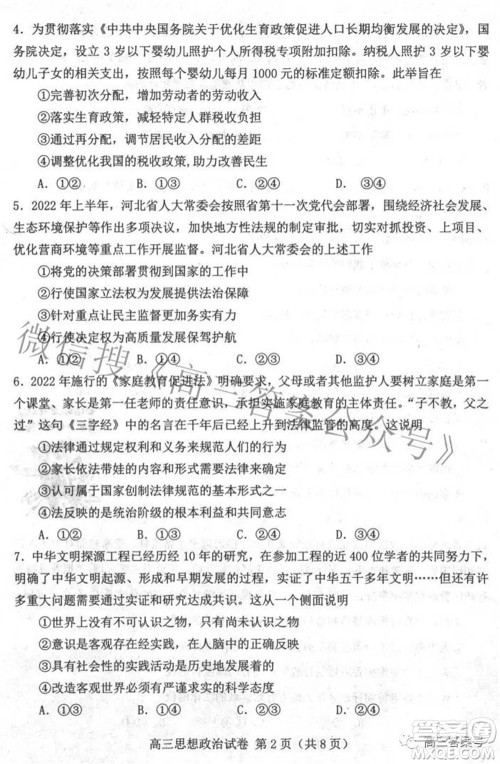 4．为贯彻落实《中共中央国务院关于优化生育政策促进人口长期均衡发展的决定》，国
务院决定，设立 3 岁以下婴幼儿照护个人所得税专项附加扣除。纳税人照护 3 岁以下婴
幼儿子女的相关支出，按照每个婴幼儿每月 1000 元的标准定额扣除。此举旨在
①完善初次分配，增加劳动者的劳动收入
②落实生育政策，减轻特定人群税收负担
③通过再分配，调节居民收入分配的差距
④调整优化我国的税收政策，助力改善民生
A．①② B．①③ C．②④ D．③④
5．2022 年上半年，河北省人大常委会按照省第十一次党代会部署，围绕经济社会发展、
生态环境保护等作出多项决议，加快地方性法规的制定，切实对抓投资、上项目、
优化营商环境等重点工作开展监督。河北省人大常委会的上述工作
①将党的决策部署贯彻到国家的工作中
②行使国家立法权为发展提供法治保障
③针对重点让民主监督发挥出实效
④行使决定权为高质量发展保驾护航
A．①② B．①④ C．②③ D．③④
6．2022 年施行的《家庭教育促进法》明确要求，父母或者其他监护人要树立家庭是第一
个课堂、家长是第一任老师的责任意识，承担实施家庭教育的主体责任。“子不教，父之
过”这句《三字经》中的名言在千年后已经上升到法律监管的高度。这说明
①法律通过规定权利和义务来规范人们的行为
②家长依法带娃的内容与国家的性质是一致的
③认可属于国家创制法律规范的基本形式之一
④法反映的是统治阶级的根本利益和共同意志
A．①② B．①③ C．②④ D．③④
7．中华文明探源工程已经历经 10 年的研究，在参加工程的近 400 位学者的共同努力下，
明确了中华文明起源、形成和早期发展的过程，实证了中华五千多年文明……但还有许
多重大问题需要通过实证和研究达成共识。这从一个侧面说明
①世界上没有不可认识之物，只有尚未认识之物
②意识是客观存在的反映，在人脑中的正确反映
③具有社会性的实践活动是历史地发展着的
④改造客观世界必须有严谨求实的科学态度
A．①② B．①③ C．②④ D．③④
高三思想政治试卷 第 2 页（共 8 页）
微信搜《高三答案公众号》
高三答案号